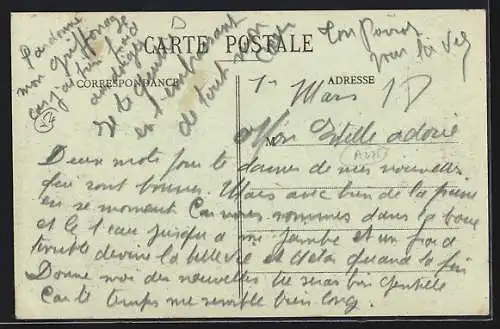 CARTE POSTALE
CORRESPONDANCE
ADRESSE
Pardonne
mon griffonage
car j'ai bien froid
au doigt
Je te quitte
en t'embrassant
de tout mon
Ton
pour la vie
1er Mars 17
M
Mon adorée
Deux mots pour te donner de mes nouvelles
qui sont bonnes. Mais avec bien de la peine
en se moment Car nous sommes dans la boue
et l'eau jusqu'a mi jambe et un froid
terrible la belle vie et quand la fin
Donne moi des nouvelles tu serai bien gentille
Car le temps me semble bien long.